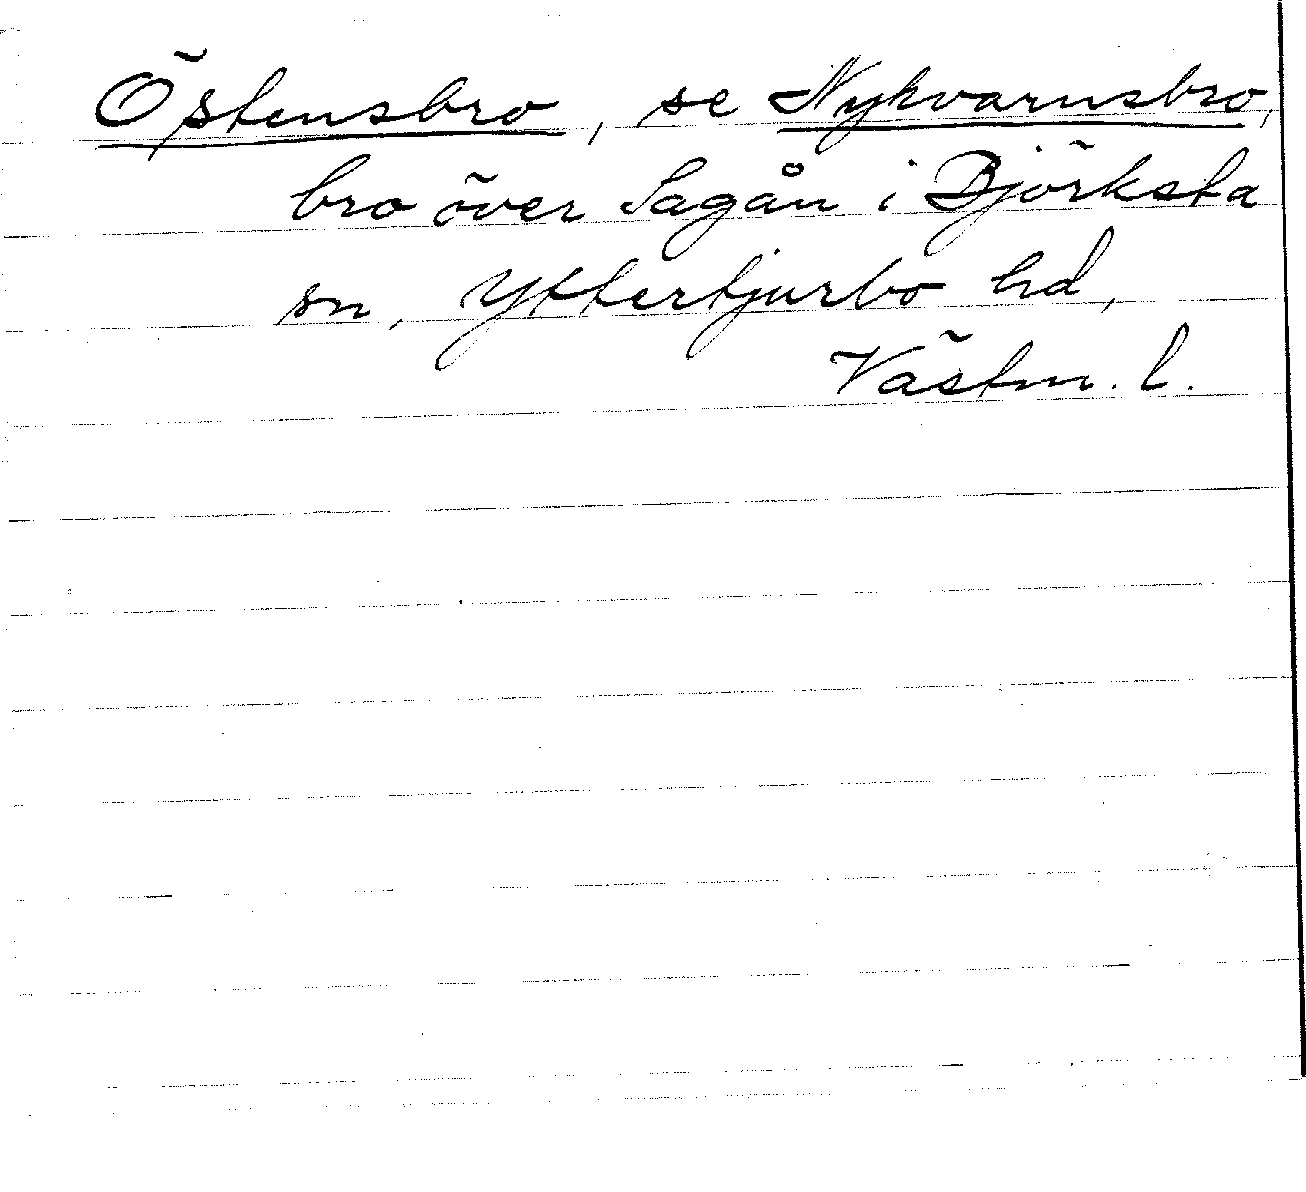 Östensbro, se Nykvarnsbro,
bro över Sagån i Björksta
sn, Yttertjurbo hd,
Västm. l.